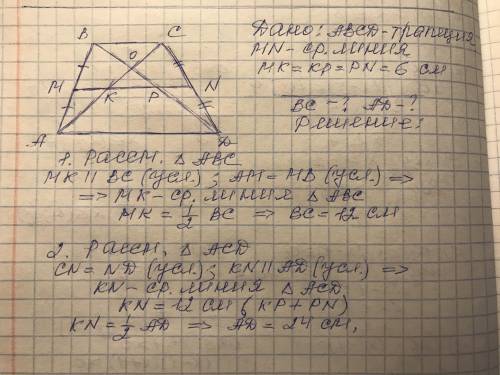 Дано: ABCD-трапеция
MN-ср. линия
MK=KP=PN=6 см
BC-? AD-?
Решение:
B C
O
M N
K P
A D
1. Рассм. △ ABC
MK || BC (усл.); AM = MB (усл.) =>
=> MK - ср. линия △ ABC
MK = 1/2 BC => BC = 12 см
2. Рассм. △ ACD
CN = ND (усл.); KN || AD (усл.) =>
KN - ср. линия △ ACD
KN = 12 см (KP + PN)
KN = 1/2 AD => AD = 24 см.